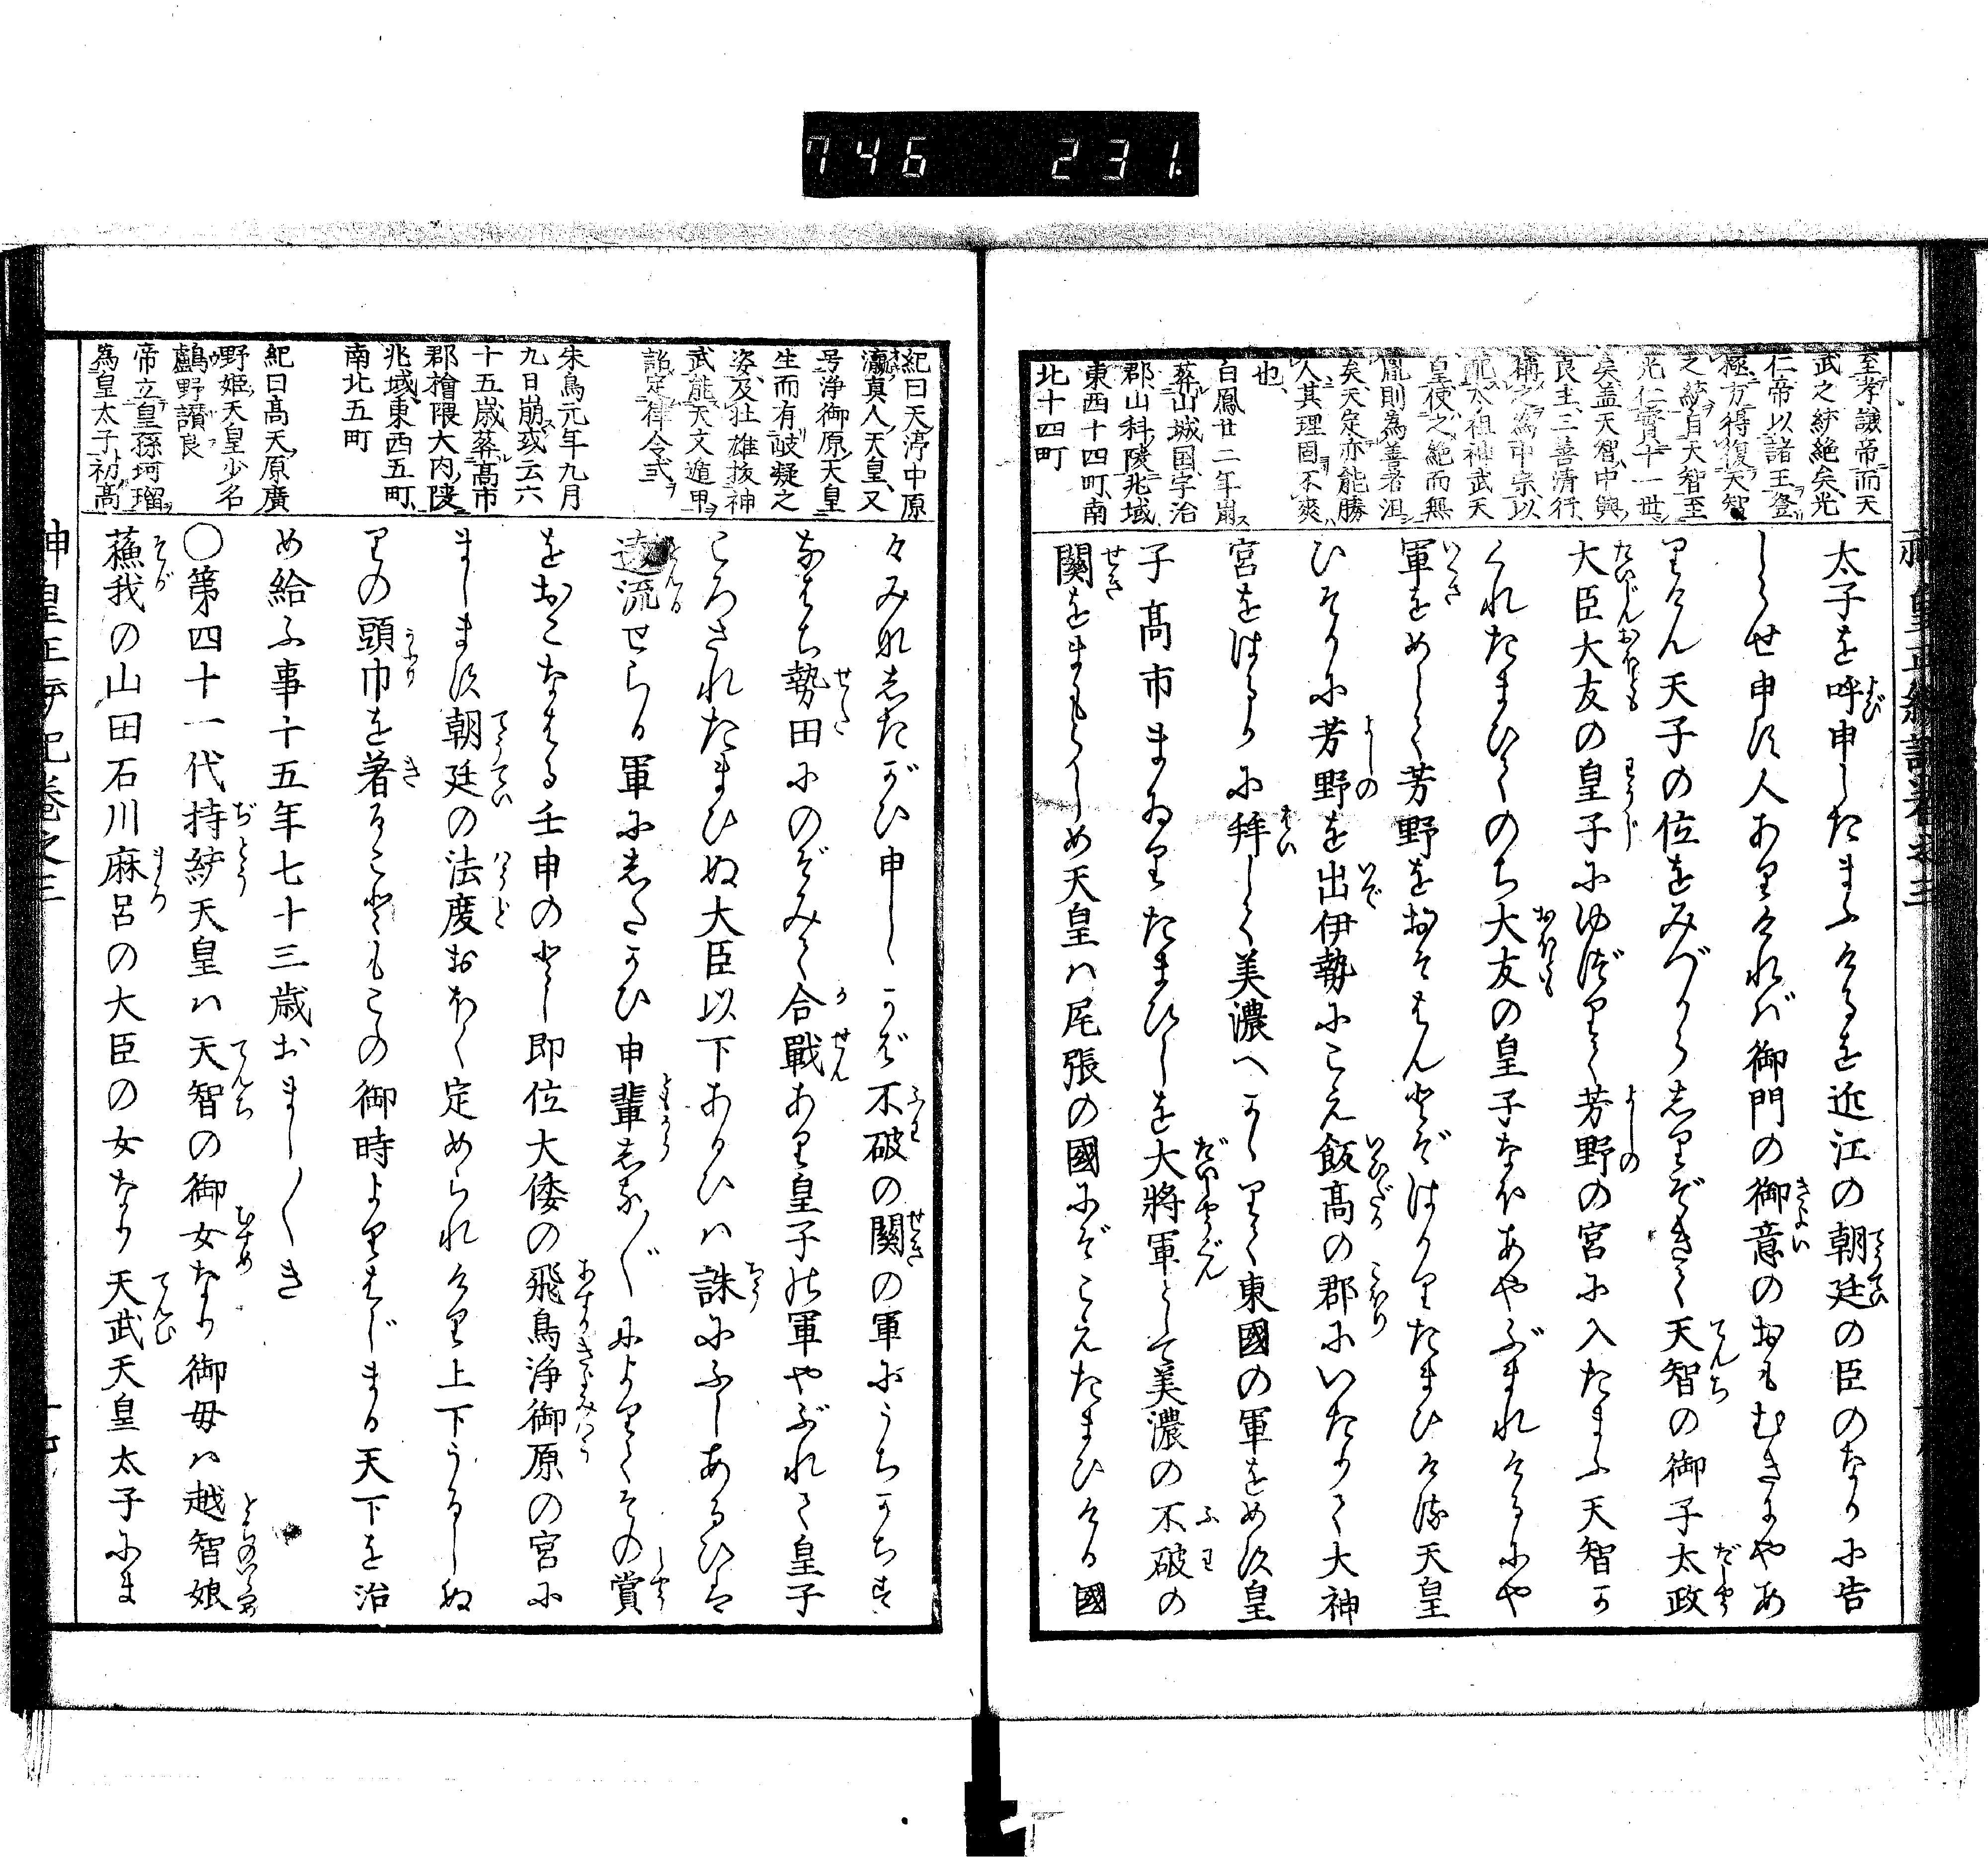 746 231.
至孝謙帝而天
武之統絶矣光
仁帝以諸王登
極方得復天智
之統自天智至
光仁實十一世
矣盖天智中興
良主三善清行
稱之為中宗以
配太祖神武天
皇使之絶而無
胤則為善者沮
矣天定亦能勝
人其理固不爽
也
白鳳廿二年崩
葬山城国宇治
郡山科陵兆域
東西十四町南
北十四町
太子を呼申したまふけるを近江の朝廷の臣のなかに告
しらせ申す人ありければ御門の御意のおもむきにやあ
りけん天子の位をみづからしりぞきて天智の御子太政
大臣大友の皇子にゆづりて芳野の宮に入たまふ天智か
くれたまひてのち大友の皇子なほあやぶまれけるにや
軍をめして芳野をおそはんとぞはかりたまひける天皇
ひそかに芳野を出伊勢にこえ飯髙の郡にいたりて大神
宮をはるかに拜して美濃へかゝりて東國の軍をめす皇
子髙市まゐりたまひしを大將軍として美濃の不破の
關をまもらしめ天皇ハ尾張の國にぞこえたまひける國
紀曰天渟中原
瀛真人天皇又
号浄御原天皇
生而有岐嶷之
姿及壮雄抜神
武能天文遁甲
詔定律令弐
朱鳥元年九月
九日崩或云六
十五歳葬髙市
郡檜隈大内陵
兆域東西五町
南北五町
紀曰髙天原廣
野姫天皇少名
鸕野讃良
帝立皇孫珂瑠
為皇太子初髙
々みなしたがひ申しゝかば不破の關の軍にうちかちす
なはち勢田にのぞみて合戰あり皇子の軍やぶれて皇子
ころされたまひぬ大臣以下あるひハ誅にふしあるひは
遠流せらる軍にしたかひ申輩しな〴〵によりてその賞
をおこなはる壬申のとし即位大倭の飛鳥浄御原の宮に
まします朝廷の法度おほく定められけり上下うるしぬ
りの頭巾を着ることもこの御時よりはじまる天下を治
め給ふ事十五年七十三歳おまし〳〵き
○第四十一代持統天皇ハ天智の御女なり御母ハ越智娘
蘓我の山田石川麻呂の大臣の女なり天武天皇太子にま
神皇正統記巻之三